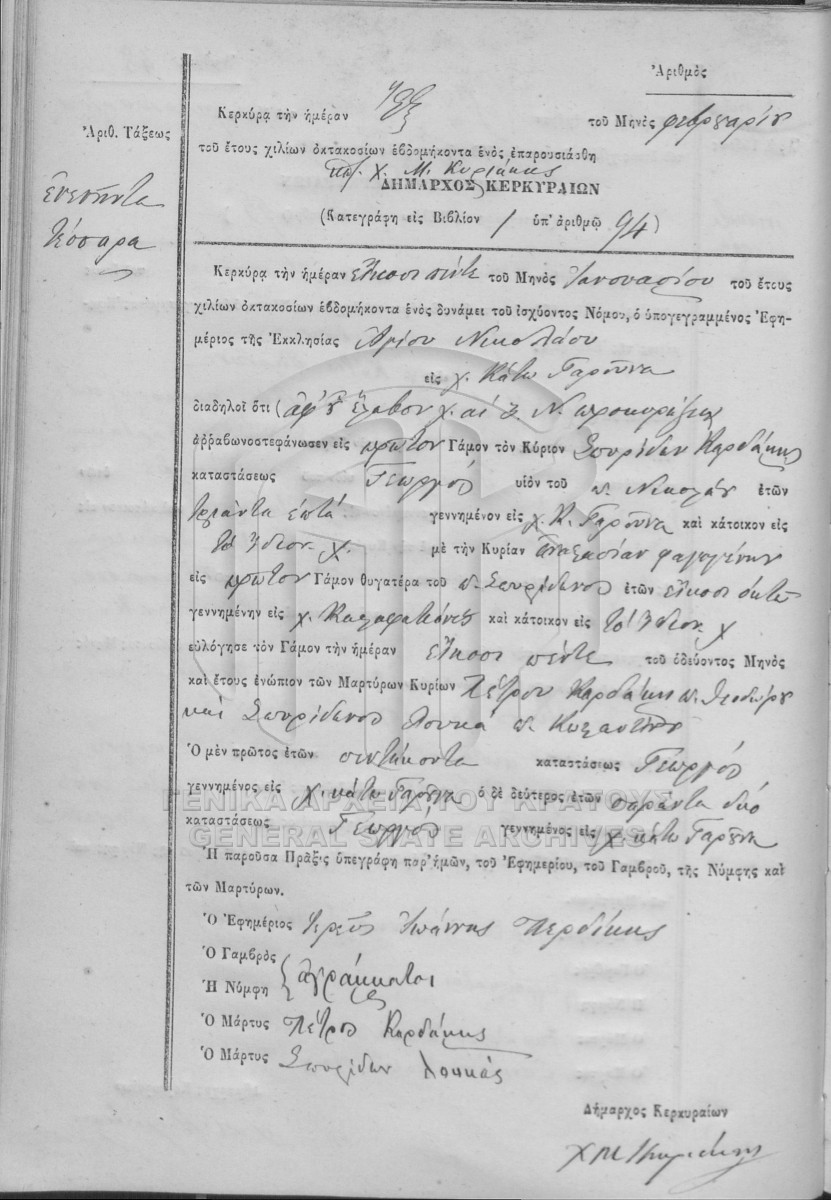 Ἀριθμὸς
Κερκύρα τὴν ἡμέραν ἕξ τοῦ Μηνὸς φεβρουαρίου
Ἀριθ. Τάξεως
τοῦ ἔτους χιλίων ὀκτακοσίων ἑβδομήκοντα ἑνὸς ἐπαρουσιάσθη
Χ. Μ. Κυριάκης
ΔΗΜΑΡΧΟΣ ΚΕΡΚΥΡΑΙΩΝ
ἐνενῆντα
τέσσαρα
(Κατεγράφη εἰς Βιβλίον 1 ὑπ' ἀριθμῷ 94)
Κερκύρα τὴν ἡμέραν εἴκοσι πέντε τοῦ Μηνὸς Ἰανουαρίου τοῦ ἔτους
χιλίων ὀκτακοσίων ἑβδομήκοντα ἑνὸς δυνάμει τοῦ ἰσχύοντος Νόμου, ὁ ὑπογεγραμμένος Ἐφη-
μέριος τῆς Ἐκκλησίας Ἁγίου Νικολάου
εἰς χ. Κάτω Γαροῦνα
διαδηλοῖ ὅτι (ἀφ' οὗ ἔλαβον χ. αἱ 3 Ν. προκηρύξεις
ἀῤῥαβωνοστεφάνωσεν εἰς πρῶτον Γάμον τὸν Κύριον Σπυρίδων Καρδάκης
καταστάσεως Γεωργὸς υἱὸν τοῦ π. Νικολάου ἐτῶν
τριάντα ἑπτά γεννημένον εἰς χ. Κ. Γαροῦνα καὶ κάτοικον εἰς
τὸ ἴδιον χ. μὲ τὴν Κυρίαν Ἀναστασίαν
εἰς πρῶτον Γάμον θυγατέρα τοῦ π. Σπυρίδωνος ἐτῶν εἴκοσι ὀκτώ
γεννημένην εἰς χ. Καλαφατιόνες καὶ κάτοικον εἰς τὸ ἴδιον χ
εὐλόγησε τὸν Γάμον τὴν ἡμέραν εἴκοσι πέντε τοῦ ὁδεύοντος Μηνὸς
καὶ ἔτους ἐνώπιον τῶν Μαρτύρων Κυρίων Πέτρου Καρδάκη π. Θεοδώρου
καὶ Σπυρίδωνος Λουκά π. Κωσταντῆ
Ὁ μὲν πρῶτος ἐτῶν πεντήκοντα καταστάσεως Γεωργός
γεννημένος εἰς χ. κάτω Γαρουνα ὁ δὲ δεύτερος ἐτῶν σαράντα δύο
ΓΕΝΙΚΑ ΑΡΧΕΙΑ ΤΟΥ ΚΡΑΤΟΥΣ
GENERAL STATE ARCHIVES
καταστάσεως Γεωργός γεννημένος εἰς χ κάτω Γαροῦνα
Ἡ παροῦσα Πρᾶξις ὑπεγράφη παρ' ἡμῶν, τοῦ Ἐφημερίου, τοῦ Γαμβροῦ, τῆς Νύμφης καὶ
τῶν Μαρτύρων.
Ὁ Ἐφημέριος Ἱερεὺς Ἰωάννης Περδίκης
Ὁ Γαμβρὸς
ἀγράμματοι
Ἡ Νύμφη
Ὁ Μάρτυς Πέτρος Καρδάκης
Ὁ Μάρτυς Σπυρίδων Λουκάς
Δήμαρχος Κερκυραίων
Χ Μ Κυριάκης